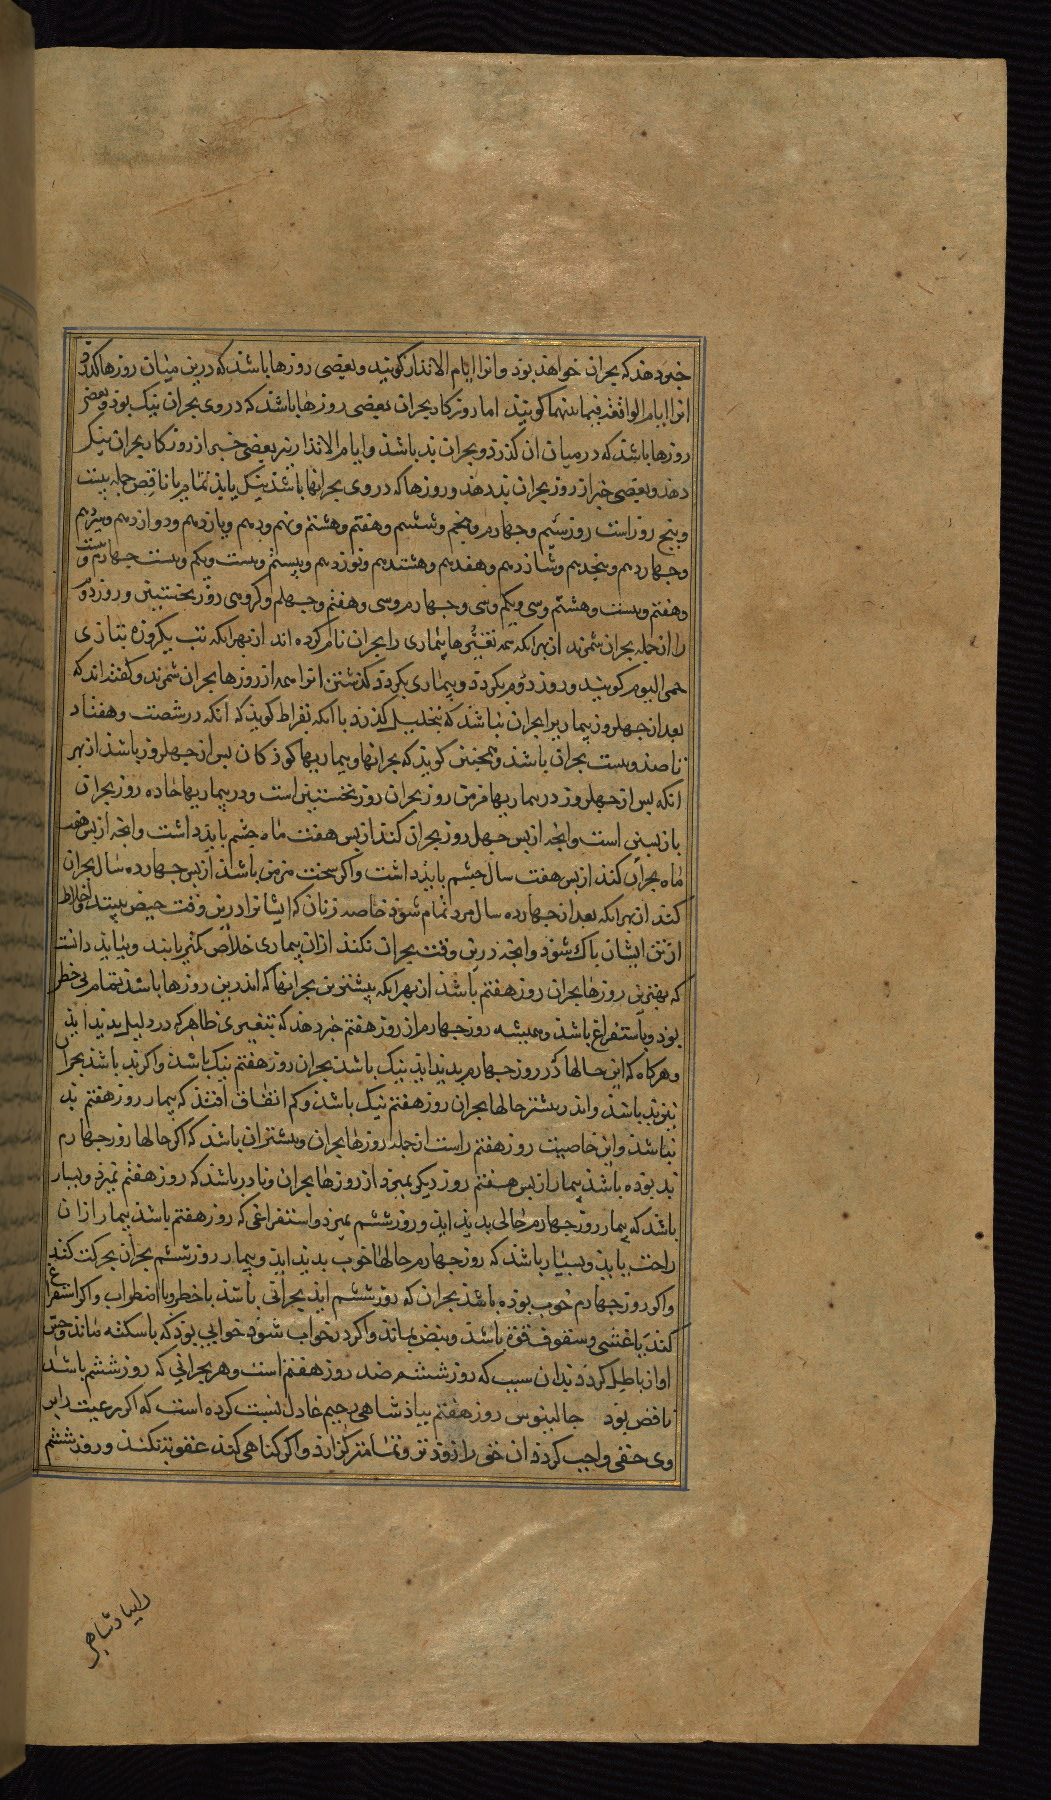 خبر دهذ که بحران خواهذ بوذ وانرا ایام الانذار کویند وبعضی روزها باشذ که درین میان روزها کذرذ و
انرا ایام الواقعة فیما بینهما کویند اما روزکار بحران بعضی روزها باشذ که در وی بحران نیک بوذ وبعضی
روزها باشذ که در میان ان کذرذ وبحران بذ باشذ وایام الانذار نیز بعضی خبر از روزکار بحران نیک
دهذ وبعضی خبر از روز بحران بذ دهذ وروزها که در وی بحرانها باشذ نیک یا بذ تمام یا ناقص جمله بیست
وپنج روز است روز سیم وچهارم وپنجم وششم وهفتم وهشتم ونهم ودهم ویازدهم ودوازدهم وسیزدهم
وچهاردهم وپنجدهم وشانزدهم وهفدهم وهشتدهم ونوزدهم وبیستم وبیست ویکم وبیست چهارم وبیست
وهفتم وبیست وهشتم وسی ویکم وسی وچهارم وسی وهفتم وچهلم وکروهی روز نخستین وروز دوم
را از جمله بحران شمرند از بهر انکه همه تغیّرها بیماری را بحران نام کرده اند از بهر انکه تب یکروزه بتازی
حمی الیوم کویند وروز دوم بکردذ وبیماری بکردذ کذشتن انرا همه از روزها بحران شمرند وکفته اند که
بعد از چهل روز بیماریرا بحران نباشذ که بتحلیل کذرذ با انکه بقراط کویذ که انکه در شصت وهفتاد
تا صذ وبیست بحران باشذ وهمچنین کویذ که بحرانها وبیماریها کوذکان پس از چهل روز باشذ از بهر
انکه پس از چهل روز در بیماریها مزمن روز بحران روز نخستین است ودر بیماریها حاده روز بحران
بازپسین است وانچه از پس چهل روز بحران کنذ از پس هفت ماه چشم بایذ داشت وانچه از پس هفت
ماه بحران کنذ از پس هفت سال چشم بایذ داشت واکر سخت مزمن باشذ از پس چهارده سال بحران
کنذ از بهر انکه بعد از چهارده سال مرد تمام شوذ خاصه زنان که ایشانرا درین وقت حیض بینند واخلاط
از تن ایشان پاک شوذ وانچه درین وقت بحران نکنذ ازان بیماری خلاص کمتر یابند وببایذ دانست
که بهترین روزها بحران روز هفتم باشذ از بهر انکه بیشترین بحرانها که اندرین روزها باشذ تمام بی خطر
بوذ وباستفراغ باشذ وهمیشه روز چهارم از روز هفتم خبر دهذ که بتغییری ظاهر که در دلیل پدید ایذ
وهرکاه که این حالها در روز چهارم پدید ایذ نیک باشذ بحران روز هفتم نیک باشذ واکر بذ باشذ بحران
نیز بذ باشذ واندر بیشتر حالها بحران روز هفتم نیک باشذ وکم اتفاق افتذ که بیمار روز هفتم بذ
نباشذ واین خاصیت روز هفتم راست از جمله روزها بحران وبیشتر ان باشذ که اکر حالها روز چهارم
بذ بوذه باشذ بیمار از پس هفتم روز دیکر بمیرذ از روزها بحران ونادر باشذ که روز هفتم بمیرذ وبسیار
باشذ که بیمار روز چهارم حالی بد پدید ایذ وروز ششم بمیرذ واستفراغی که روز هفتم باشذ بیمار ازان
راحت یابذ وبسیار باشذ که روز چهارم حالها خوب پدید ایذ وبیمار روز ششم بحران بحرکت کنذ
واکر روز چهارم خوب بوذه باشذ بحران که روز ششم ایذ بحرانی باشذ با خطر وبا اضطراب واکر استفراغ
کنذ با غشی وسقوط قوة باشذ ونبض بماند واکر در خواب شوذ خوابی بوذ که با سکته ماند وحس
اواز باطل کردذ بدان سبب که روز ششم ضد روز هفتم است وهر بحرانی که روز ششم باشذ
ناقص بوذ جالینوس روز هفتم بپاذشاهی رحیم عادل نسبت کرده است که اکر رعیت را بر
وی حقی واجب کردذ ان حق را زوذتر وتمامتر کزارذ واکر کناهی کنند عقوبت نکنذ وروز ششم
را بپادشاهی